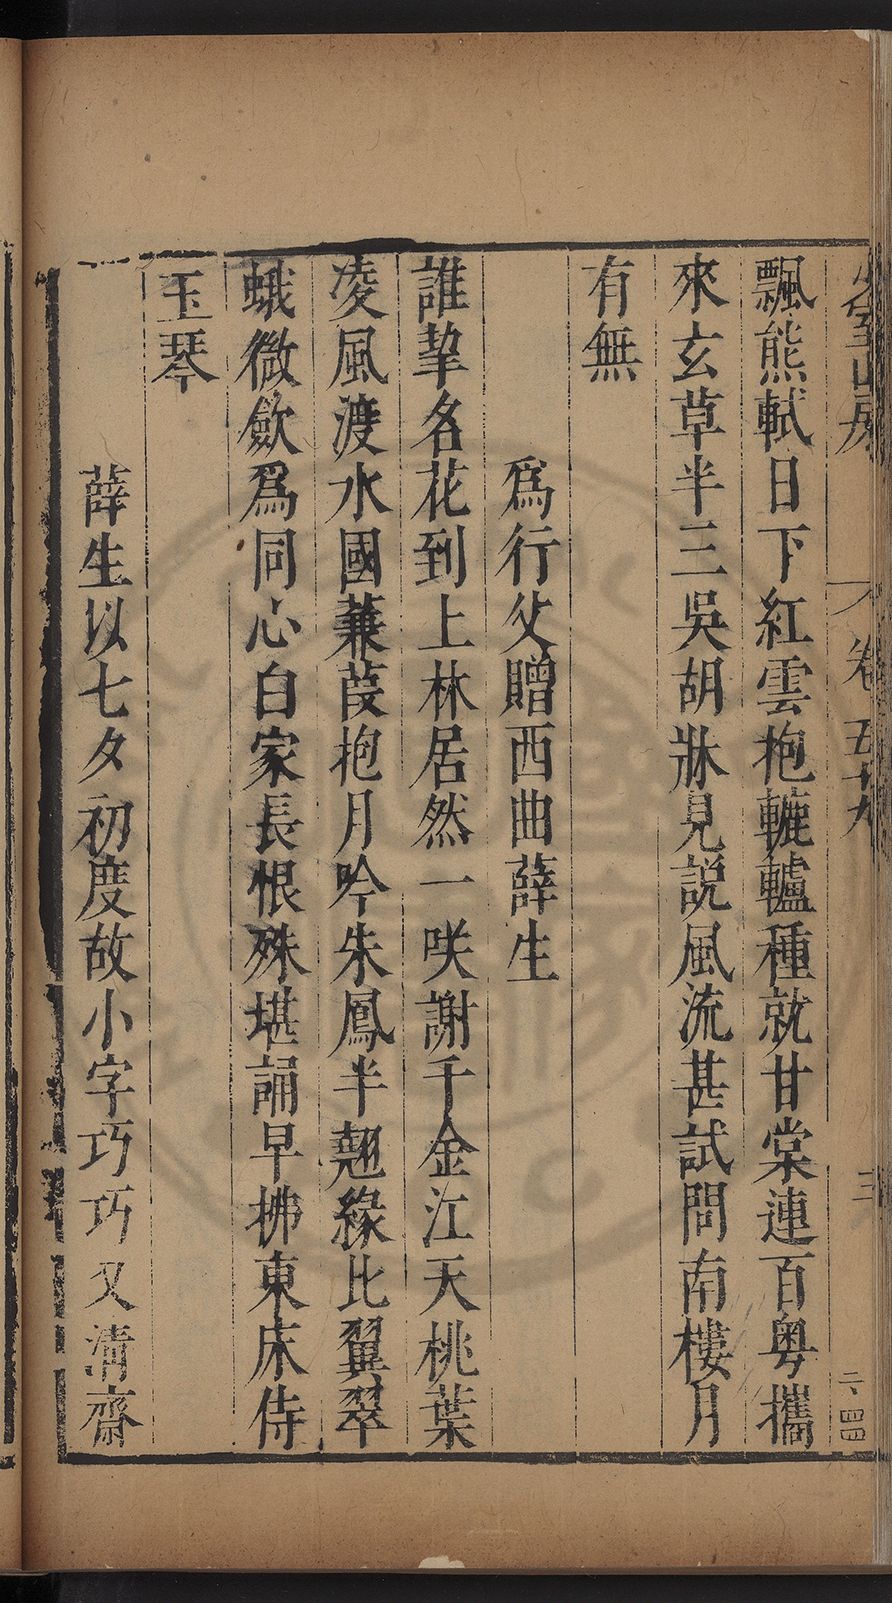 少室山房 卷五十九 三 二、四四
飄熊軾日下紅雲抱轆轤種就甘棠連百粵攜
來玄草半三吳胡牀見説風流甚試問南樓月
有無
爲行父贈西曲薛生
誰挈名花到上林居然一咲謝千金江天桃葉
凌風渡水國蒹葭抱月吟朱鳳半翹緣比翼翠
蛾微斂爲同心白家長恨殊堪誦早拂東床侍
玉琴
薛生以七夕初度故小字巧巧又清齋